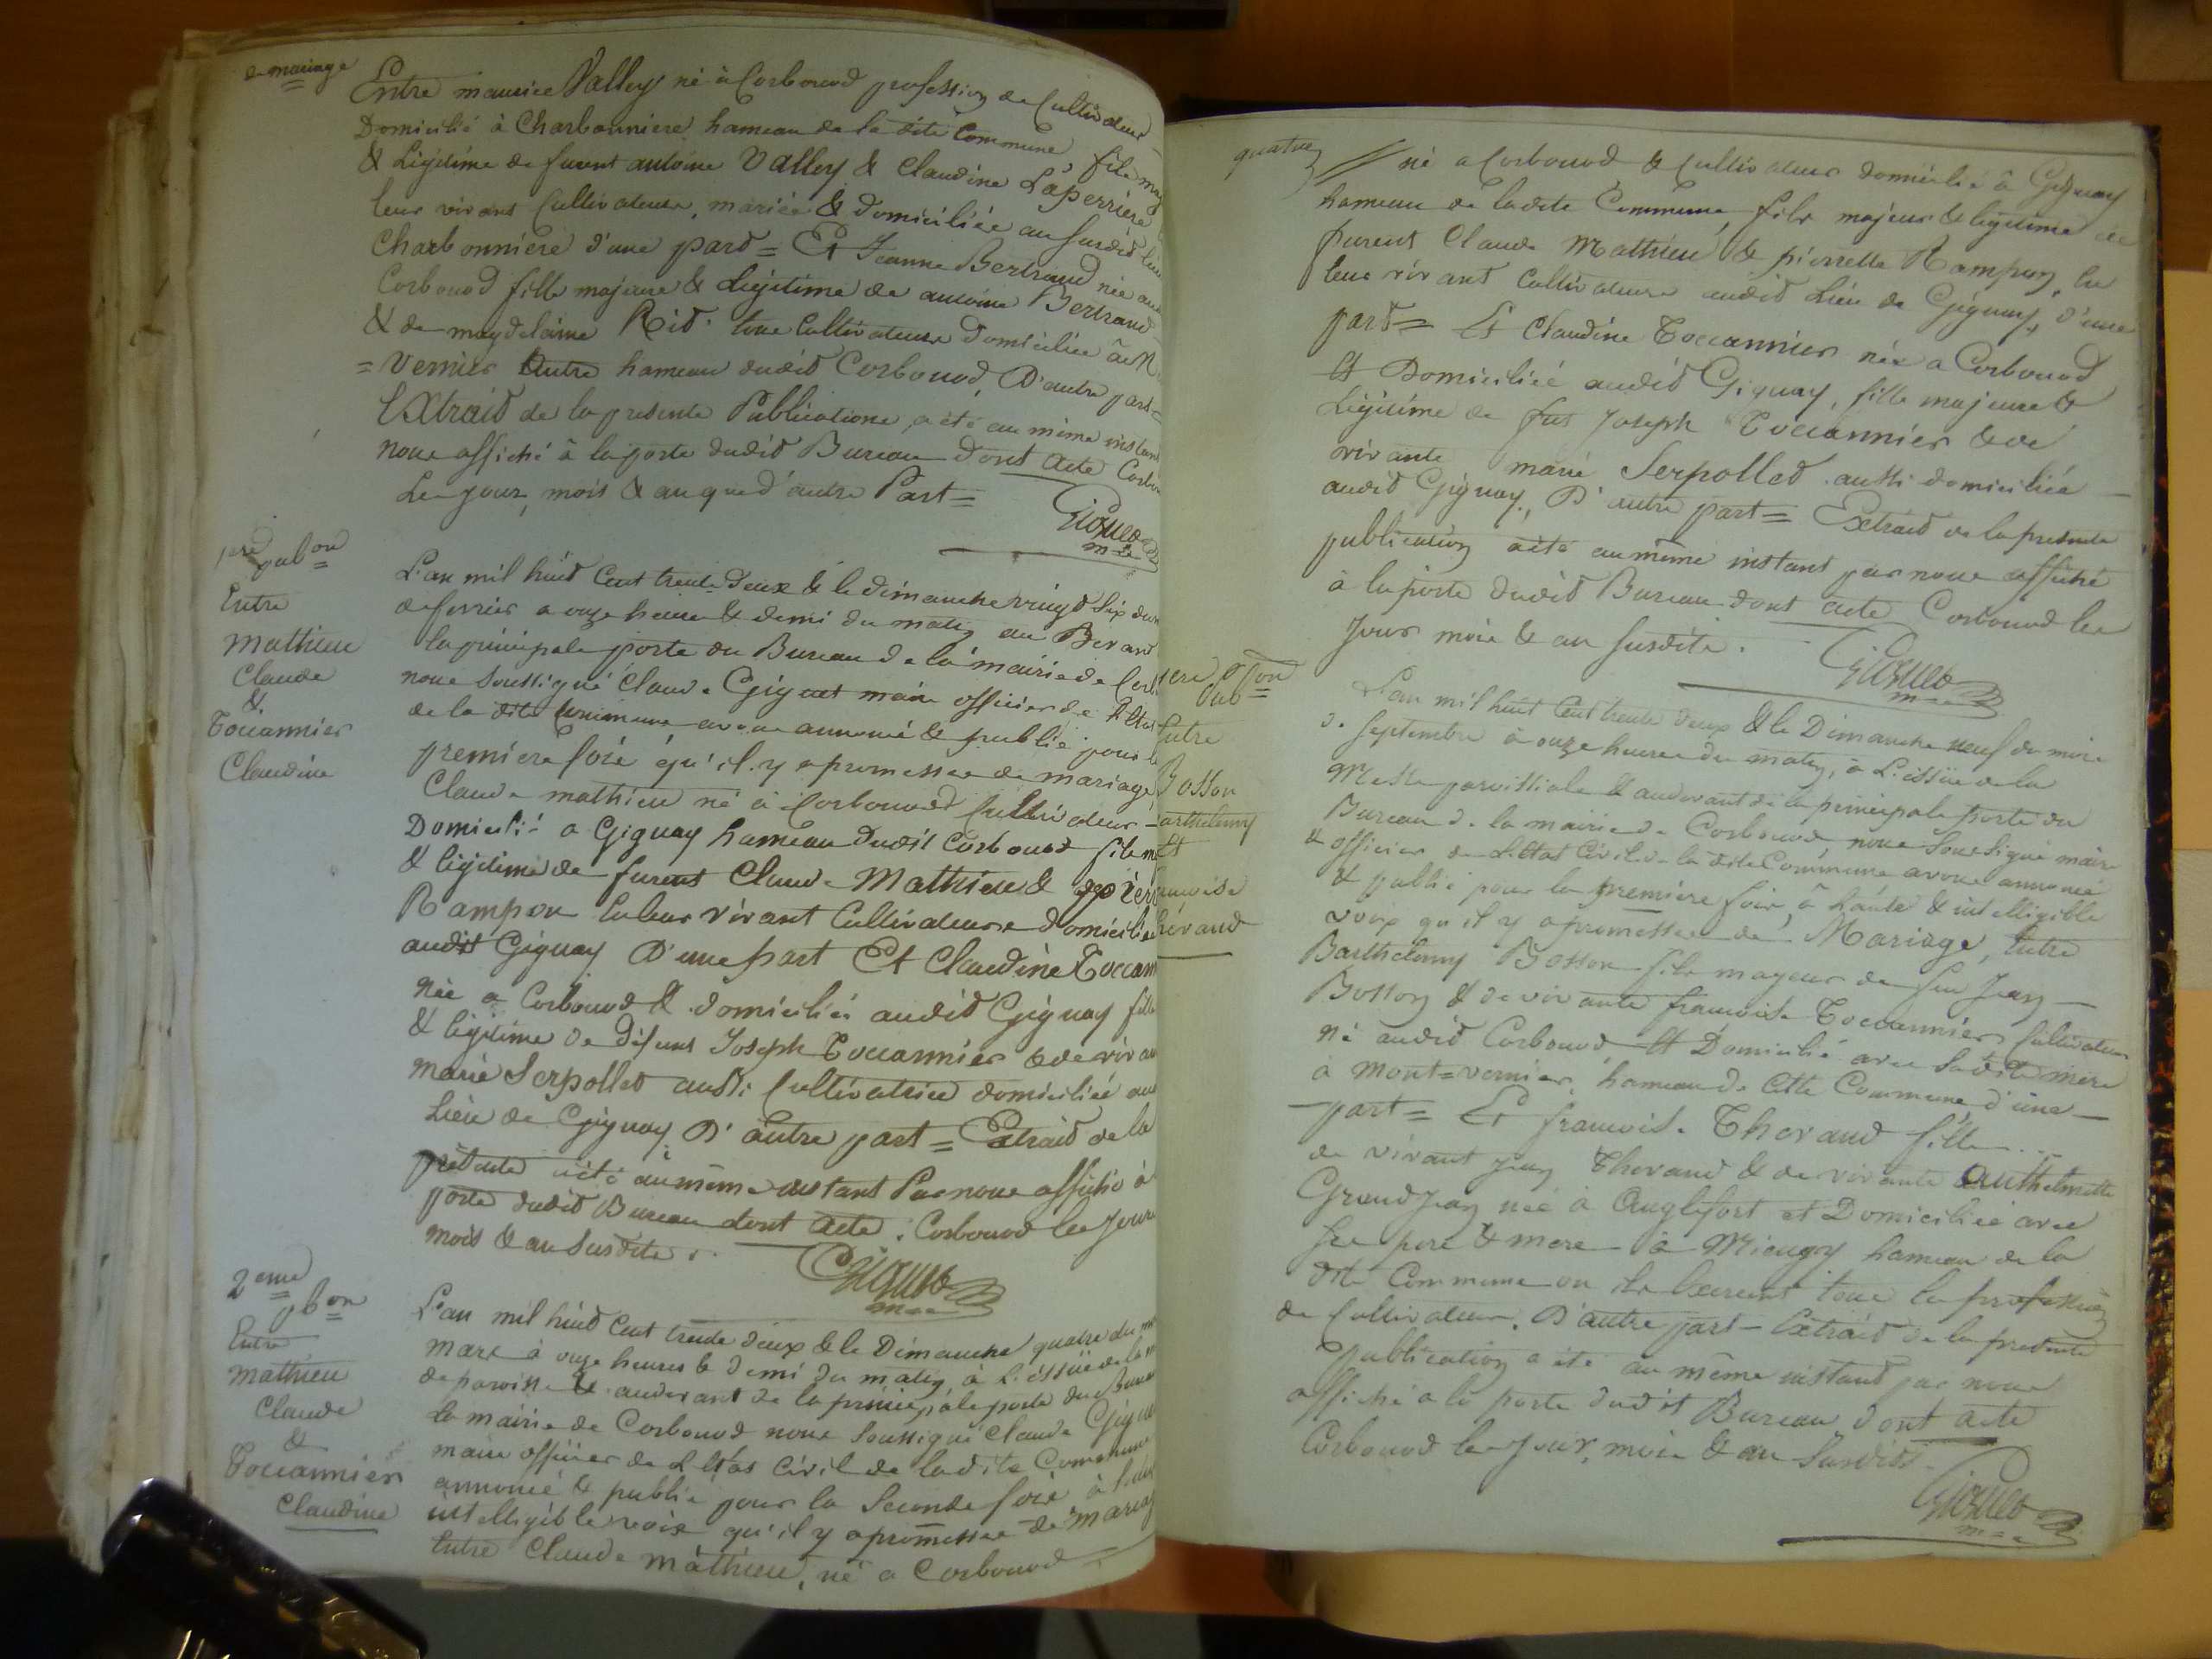 de mariage
Entre maurice Valley né à Corbonod profession de Cultivateur
Domicilié à Charbonniere hameau de la dite Commune, fils maj
& Légitime de furent antoine Valley & Claudine Laperriere
leur vivant Cultivateurs, mariés & domiciliés au susdit lieu
Charbonniere d'une part = Et Jeanne Bertrand née au
Corbonod fille majeure & Légitime de antoine Bertrand
& de magdelaine Rid tous Cultivateurs Domiciliés à M
= Vernier Autre hameau dudit Corbonod, D'autre part =
Extrait de la presente Publications, a été au même instan
nous affiché à la porte dudit Bureau dont acte Corbo
Les jour, mois & an que d'autre Part =
1ere pubon
Entre
Mathieu
Claude
&
Toccannier
Claudine
L'an mil huit Cent trente deux & le dimanche vingt Six du
de fevrier a onze heures & demi du matin au Devant
la principale porte du Bureau de la mairie de Corb
nous Soussigné Claude Giguet maire officier de l'Etat
de la dite Commune avons annoncé & publié pour la
premiere fois qu'il y a promesses de mariage
Claude mathieu né à Corbonod Cultivateur
Domicilié a Gignay hameau dudit Corbonod fils m
& légitime de furent Claude Mathieu & pier
Rampon leur vivant Cultivateurs domiciliés
audit Gignay D'une part Et Claudine Toccan
née a Corbonod & domiciliée audit Gignay fille
& légitime de défunt Joseph Toccannier & de vivan
marie Serpollet aussi Cultivatrice domiciliée au
Lieu de Gignay D'autre part = Extrait de la
présente a été au même instant Par nous affiché à
porte dudit Bureau dont acte : Corbonod les Jours
mois & an Susdits.
2eme
pbon
Entre
Mathieu
Claude
&
Toccannier
Claudine
L'an mil huit Cent trente deux & le Dimanche quatre du m
mars à onze heures & demi du matin à L'issüe de la m
de paroisse & audevant de la principale porte du Bureau
la mairie de Corbonod nous Soussigné Claude Gigu
maire officier de L'Etat Civil de la dite Commune
annoncé & publié pour la Seconde fois à haute
intelligible voix qu'il y a promesses de mariag
Entre Claude mathieu, né a Corbonod
quatre
né a Corbonod & Cultivateur domicilié à Gignay
hameau de la dite Commune, fils majeur & légitime de
furent Claude Mathieu & pierrette Rampon,
leur vivant Cultivateurs audit Lieu de Gignay, d'une
part = Et Claudine Toccannier née a Corbonod
Et Domiciliée audit Gignay, fille majeure &
Légitime de fut Joseph Toccannier & de
vivante marie Serpollet aussi domiciliée
audit Gignay, D'autre part = Extrait de la presente
publication a été au même instant par nous affiché
à la porte dudit Bureau dont acte Corbonod les
Jour mois & an susdits.
1ere pubon
Entre
Bosson
arthelemy
Et
ançoise
hévand
L'an mil huit Cent trente deux & le Dimanche neuf du mois
de Septembre à onze heures du matin, à L'issüe de la
Messe paroissiale & audevant de la principale porte du
Bureau de la mairie de Corbonod, nous Soussigné maire
& officier de L'Etat Civil de la dite Commune avons annoncé
& publié pour la premiere fois, à haute & intelligible
voix qu'il y a promesses de Mariage, Entre
Barthelemy Bosson fils majeur de feu Jean
Bosson & de vivante francoise Toccannier Cultivateur
né audit Corbonod, Et Domicilié avec Sadite mère
à Mont=Vernier, hameau de Cette Commune, d'une
part = Et francoise Thevand fille
de vivant Jean Thevand & de vivante Anthelmette
Grandjean née à Anglefort et Domiciliée avec
Ses pere & mere à Mieugy hameau de la
dite Commune ou ils Exercent tous la profession
de Cultivateurs. D'autre part — Extrait de la presente
Publication a été au même instant par nous
affiché a la porte dudit Bureau dont acte
Corbonod les Jour, mois & an Susdits